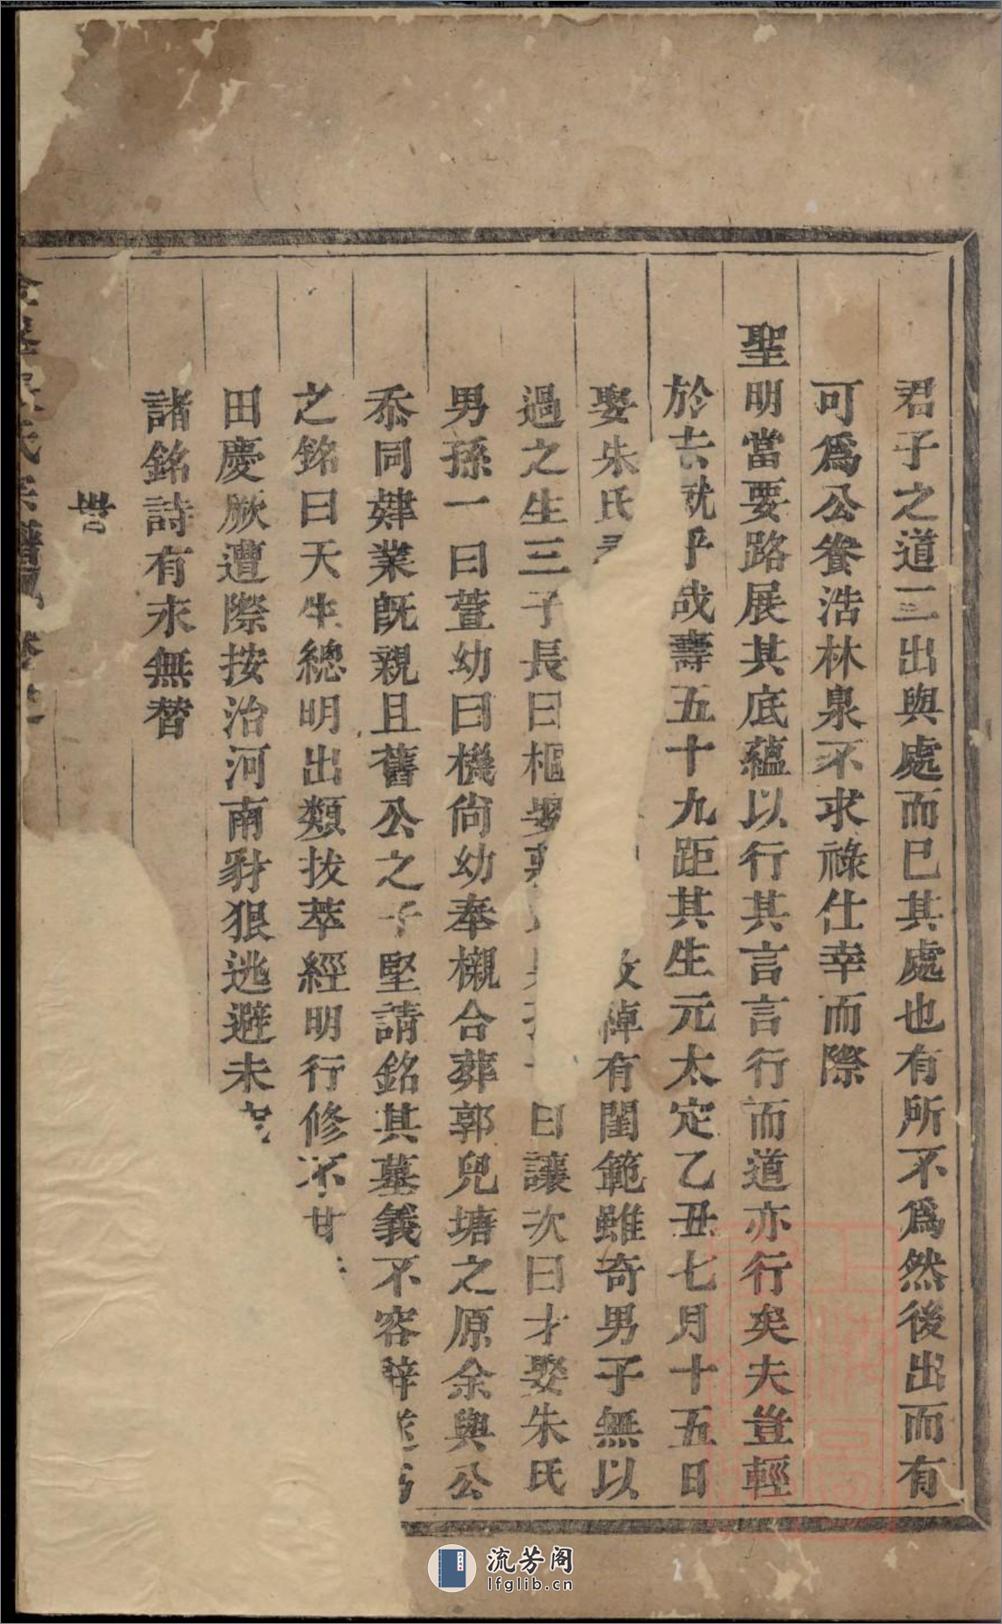 君子之道二出與處而已其處也有所不爲然後出而有
可爲公養浩林泉不求祿仕幸而際
聖明當要路展其底蘊以行其言言行而道亦行矣夫豈輕
於去就乎哉壽五十九距其生元太定乙丑七月十五日
娶朱氏 淑有閨範雖奇男子無以
過之生三子長曰樞娶 曰讓次曰才娶朱氏
男孫一曰萱幼曰機尚幼奉櫬合葬郭兒塘之原余與公
忝同肄業旣親且舊公之子堅請銘其墓義不容辭遂爲
之銘曰天生總明出類拔萃經明行修不甘
田慶厥遭際按治河南豺狠逃避未
諸銘詩有永無替
氏宗譜
流芳阁
lfglib.cn